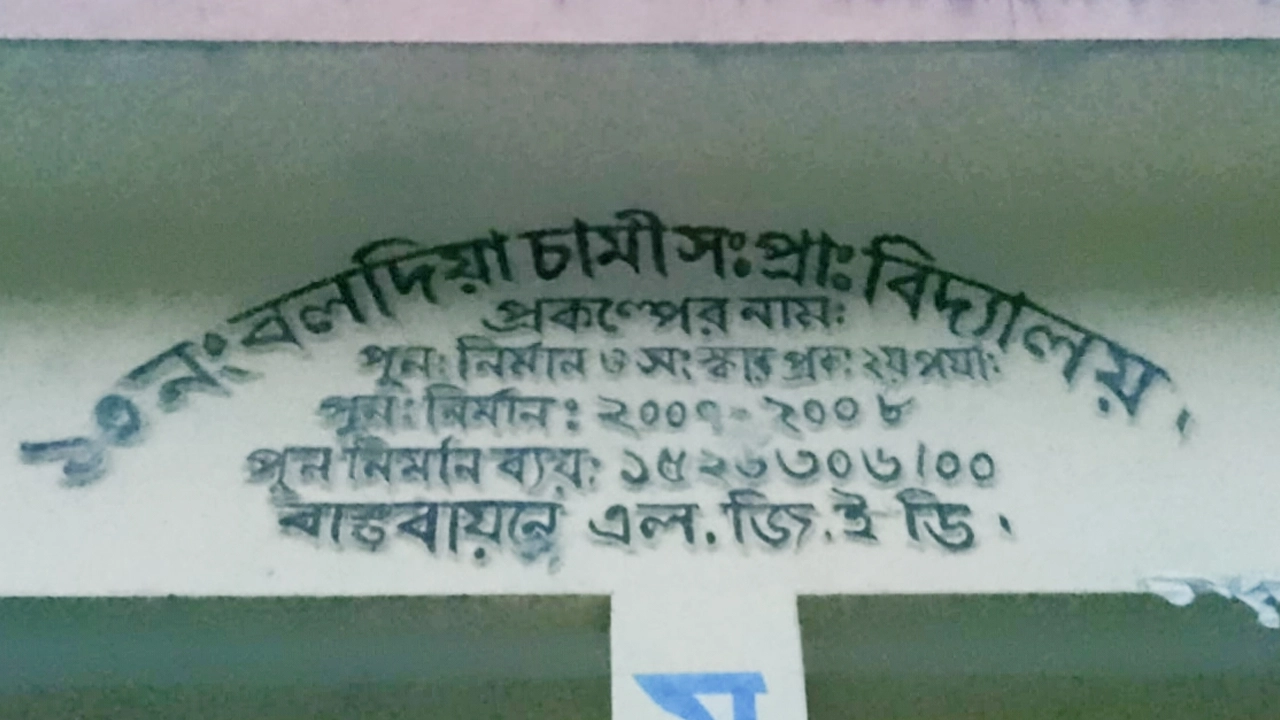 ১৩নং বলদিয়া চামী সঃ প্রাঃ বিদ্যালয়।
প্রকল্পের নামঃ
পুনঃ নির্মান ও সংস্কার প্রকঃ ২য় পর্যাঃ
পুনঃ নির্মান : ২০০৭-২০০৮
পুন নির্মান ব্যয়ঃ
বাস্তবায়নে এল.জি.ই ডি।